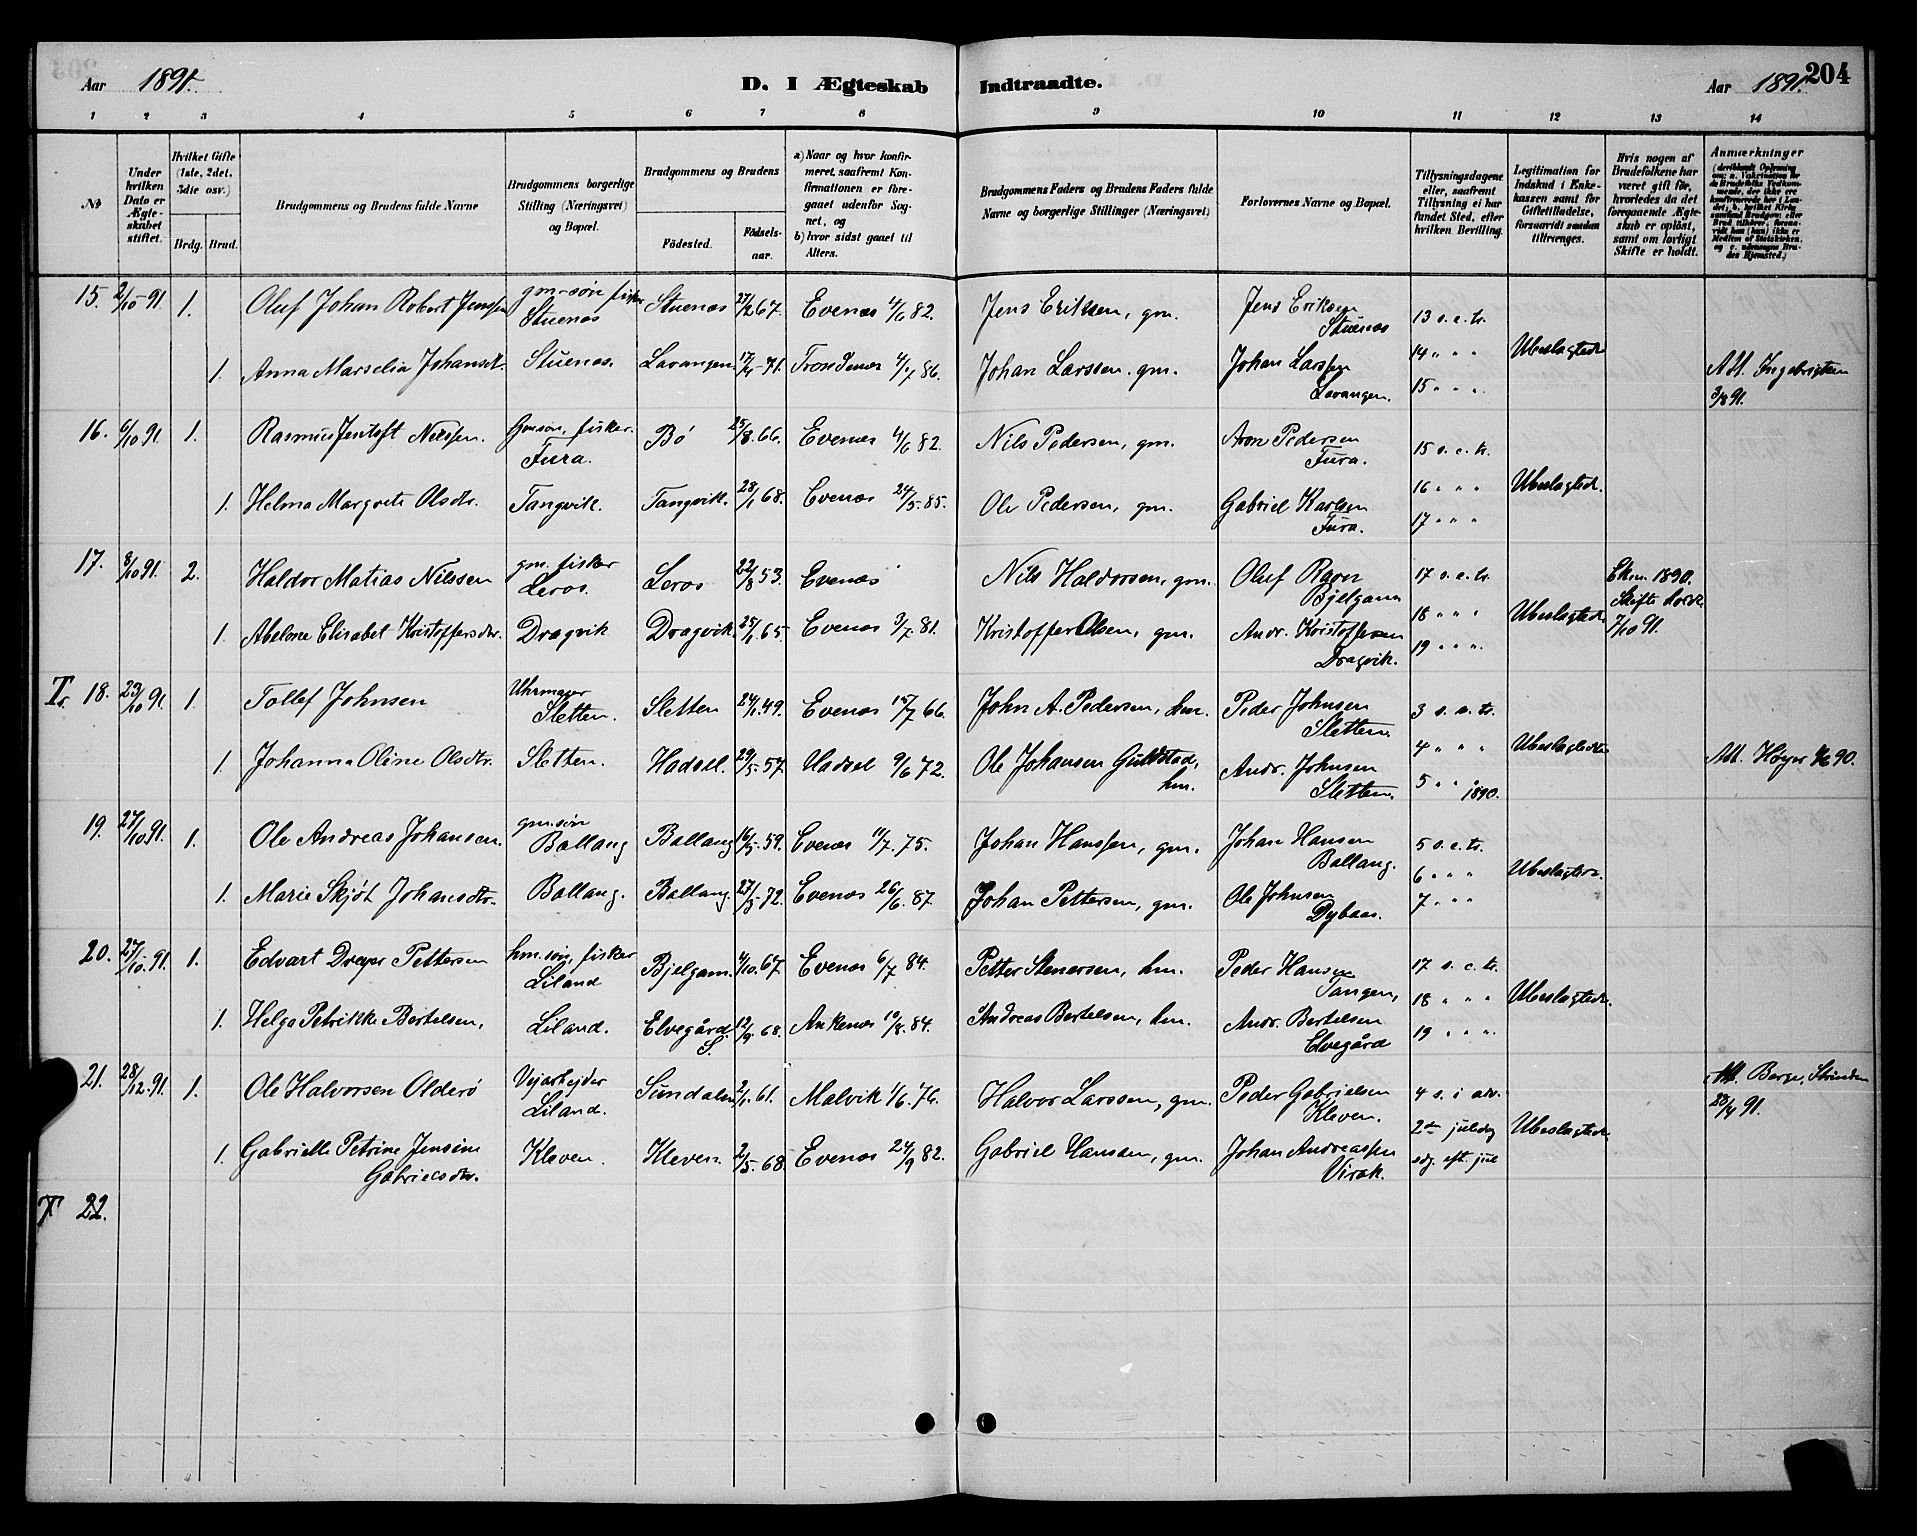 Aar 1891. D. I Ægteskab Indtraadte. Aar 1891. 204
1 2 3 4 5 6 7 8 9 10 11 12 13 14
№
Under hvilken Dato er Ægteskabet stiftet.
Hvilket Gifte (1ste, 2det, 3die osv.)
Brdg. Brud.
Brudgommens og Brudens fulde Navne
Brudgommens borgerlige Stilling (Næringsvei) og Bopæl.
Brudgommens og Brudens
Fødested. Fødsels-aar.
a) Naar og hvor konfirmeret, saafremt Konfirmationen er foregaaet udenfor Sognet, og
b) hvor sidst gaaet til Alters.
Brudgommens Faders og Brudens Faders fulde Navne og borgerlige Stillinger (Næringsvei)
Forlovernes Navne og Bopæl.
Tillysningsdagene eller, saafremt Tillysning ei har fundet Sted, efter hvilken Bevilling.
Legitimation for Indskud i Enkekassen samt for Giftetilladelse, forsaavidt saadan tiltrænges.
Hvis nogen af Brudefolkene har været gift før, hvorledes da det foregaaende Ægteskab er opløst, samt om lovligt Skifte er holdt.
Anmærkninger
15. 2/10 91 1. Oluf Johan Robert Jenssen gm.søn fisker Stuenes Stuenes 27/2 67. Evenes 4/6 82. Jens Eriksen, gm. Jens Eriksen Stuenes 13 s. e. tr.
1. Anna Marselia Johansdr. Stuenes. Lavangen. 17/4 71. Trondenes 4/7 86. Johan Larssen. gm. Johan Larssen Lavangen. 14 " " " 15 " " Ubeslægtede Att. Ingebrigtsen 3/8 91.
16. 6/10 91. 1. Rasmus Jentoft Nilssen. Gmsøn, fisker. Fura. Bø 25/8. 66. Evenes 4/6 82. Nils Pedersen, gm. Aron Pedersen Fura. 15 s. e. tr.
1. Helma Margrete Olsdtr. Tangvik. Tangvik. 28/1 68. Evenes 24/5. 85. Ole Pedersen, gm. Gabriel Karlsen Fura. 16 " " 17 " " Ubeslægtede.
17. 8/10 91. 2. Haldor Matias Nilssen gm. fisker Leros. Leros 22/8 53. Evenes Nils Haldorsen, gm. Oluf Ravn Bjelgam 17 s. e. tr. Ekm. 1890. Skifte
1. Abelone Elisabet Kristoffersdtr. Dragvik Dragvik. 25/1 65. Evenes 3/7. 81. Kristoffer Olsen, gm. Andr. Kristoffersen Dragvik. 18 " " " 19 " " " Ubeslægtede 7/10 91.
Tr. 18. 23/10 91 1. Tollef Johnsen Uhrmager Sletten. Sletten 24/1 49. Evenes 15/7 66. John A. Pedersen, hm. Peder Johnsen Sletten. 3 s. e. tr.
1. Johanna Oline Olsdtr. Sletten. Hadsel. 29/5 57. Hadsel 9/6 72. Ole Johansen Guldstad, hm. Andr. Johnsen Sletten. 4 " " " 5 " " 1890. Ubeslægtede Att. Høyer 90.
19. 27/10 91. 1. Ole Andreas Johansen. gm.søn Ballang Ballang 16/5. 59. Evenes 11/7. 75. Johan Hanssen, gm. Johan Hansen Ballang. 5 s. e. tr.
1. Marie Skjøt Johansdtr. Ballang. Ballang. 27/3 72. Evenes 26/6. 87. Johan Pettersen, gm. Ole Johnsen Dybaas. 6 " " " 7 " " Ubeslægtede.
20. 27/10. 91. 1. Edvart Dreyer Pettersen hm.søn, fisker Liland Bjelgam. 4/10. 67. Evenes 6/7 84. Petter Stenersen, hm. Peder Hansen Tangen, 17 s. e. tr.
1. Helga Petrikke Bertelsen, Liland. Elvegård. S. 12/9 68. Ankenes 10/8. 84. Andreas Bertelsen, hm. Andr. Bertelsen Elvegård 18 " " " 19 " " " Ubeslægtede.
21. 28/12. 91. 1. Ole Halvorsen Olderø Vejarbejder Liland. Sundalen 2/1. 61. Malvik 1/6. 76. Halvor Larssen, gm. Peder Gabrielsen Kleven. 4 s. i adv. Att. Berge, Strinden 23/4 91.
1. Gabrielle Petrine Jensine Gabrielsdtr. Kleven. Kleven. 2/5. 68. Evenes 24/9 82. Gabriel Hansen, gm. Johan Andreassen Virak. 2den juledag sdg. eft. jul Ubeslægtede.
T 22.